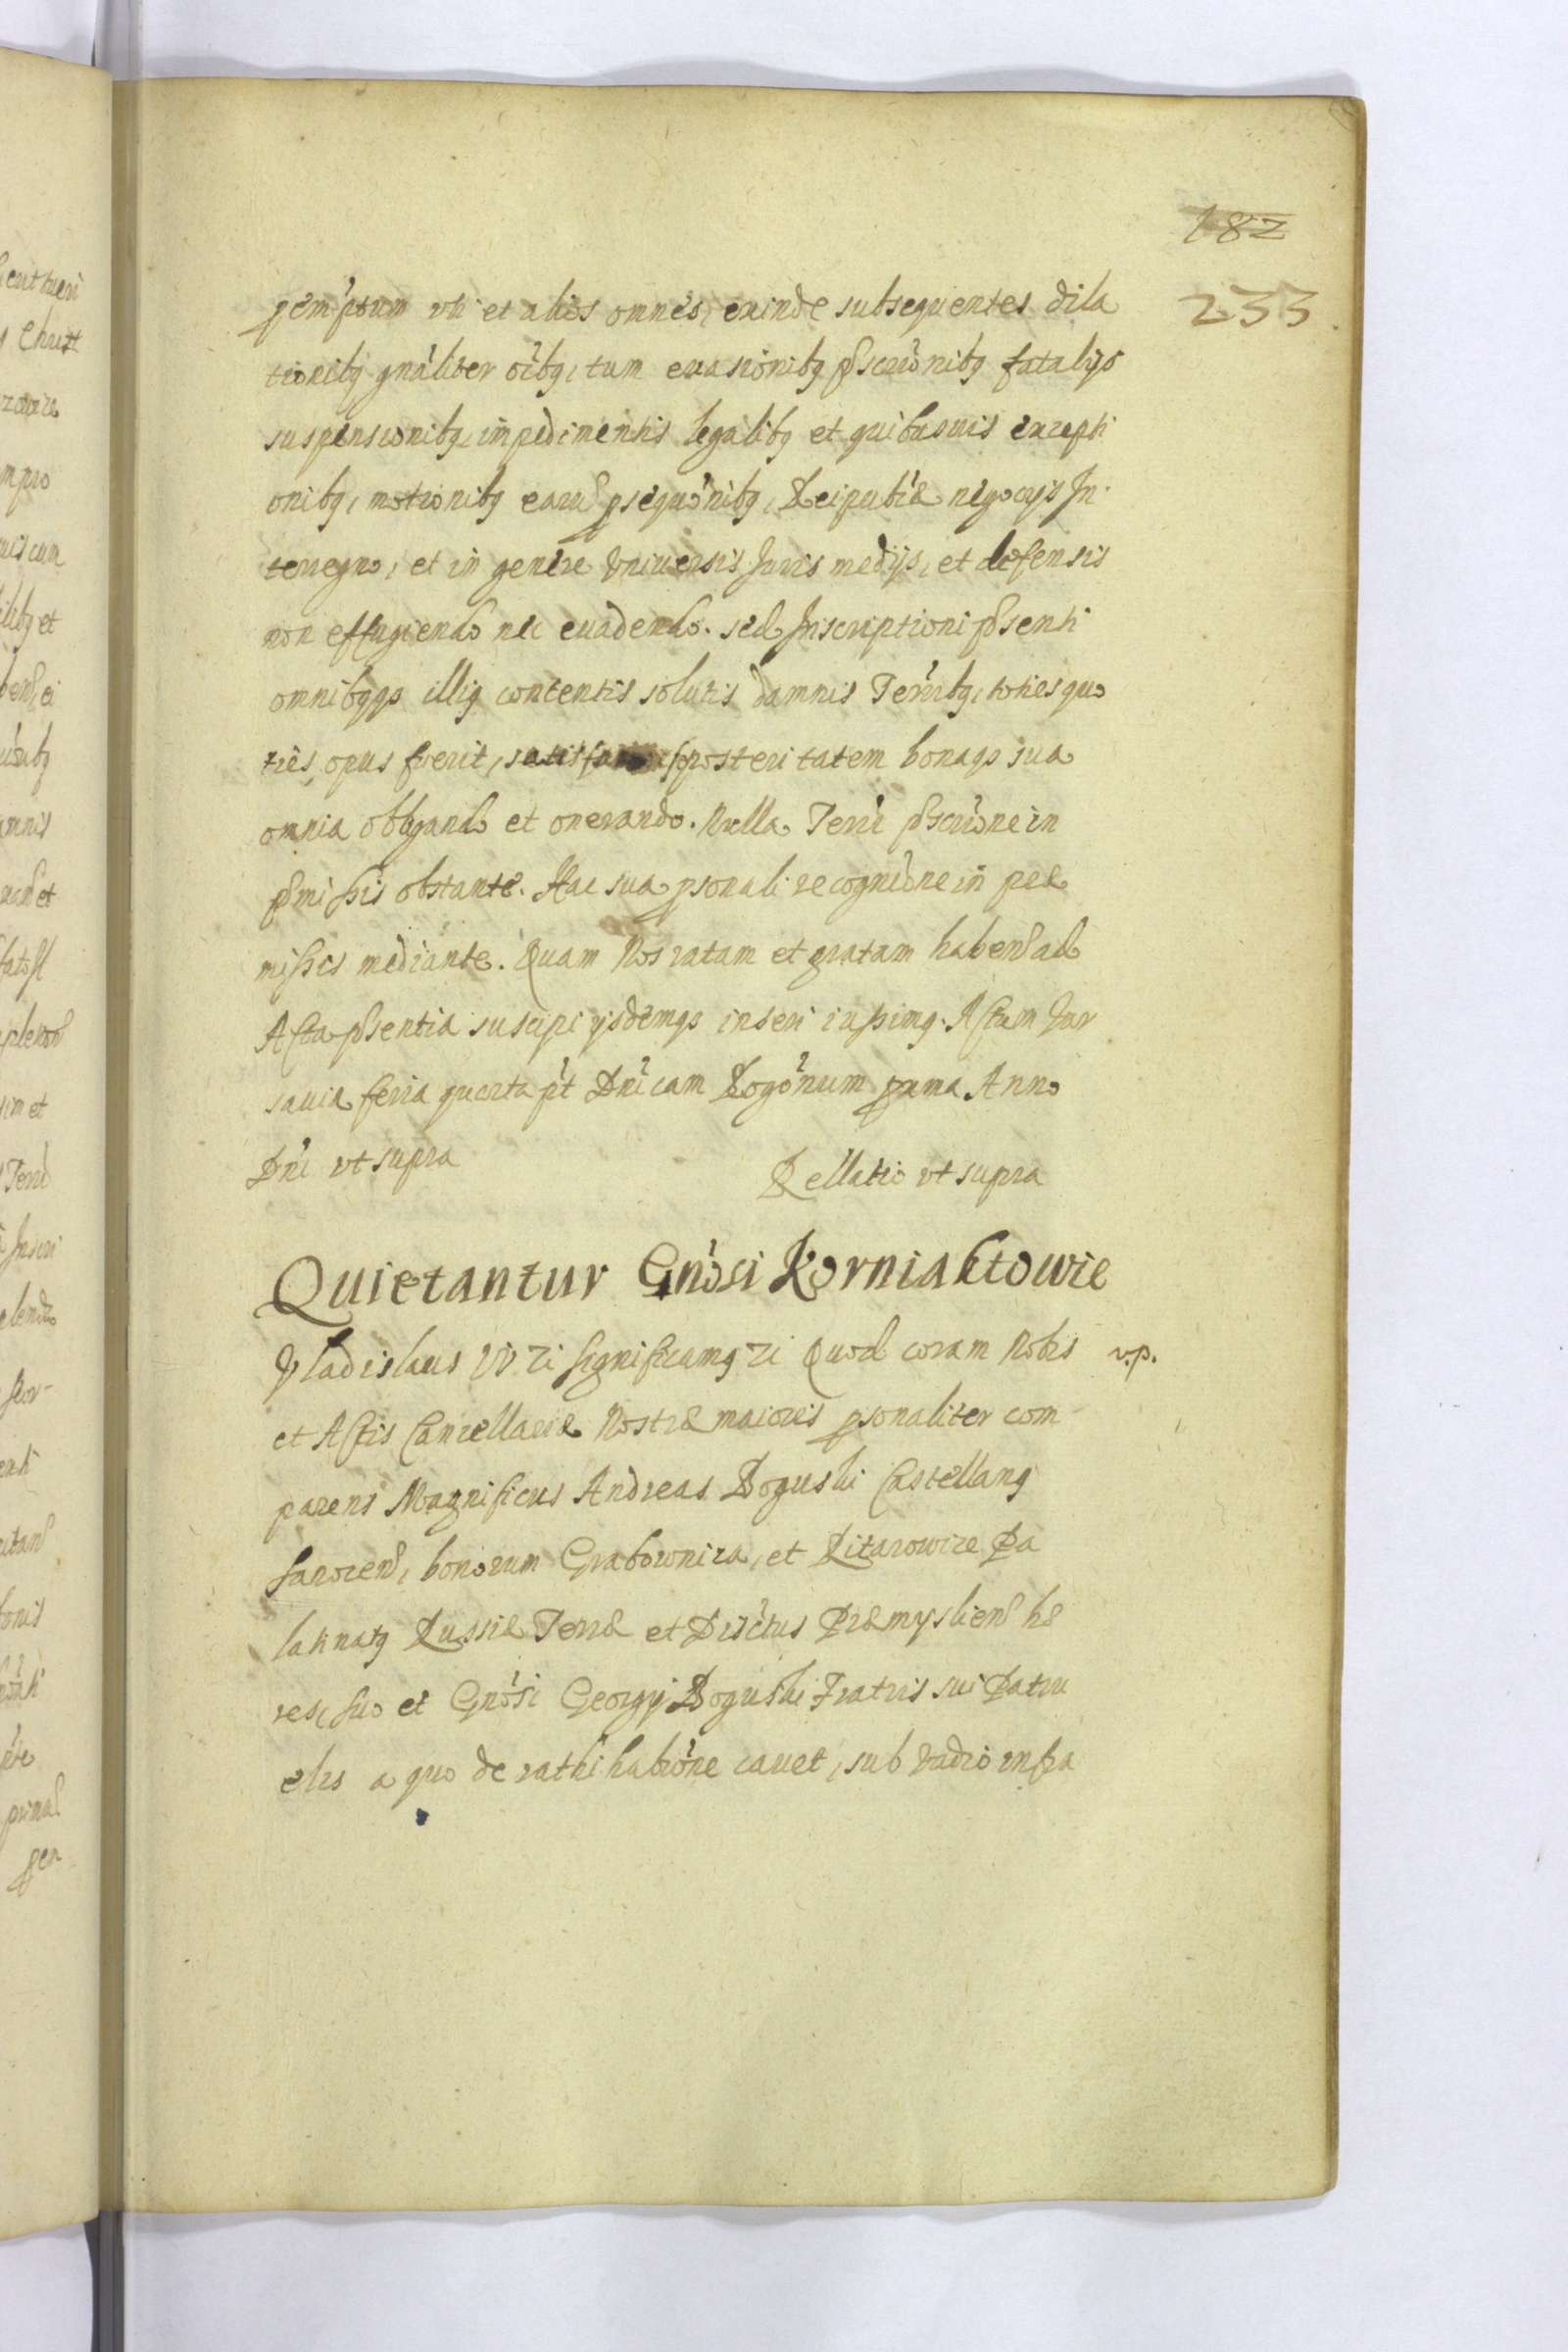 182
233
pemptum uti et alios omnes, exinde subsequentes dila
tionibꝫ gnãliter oĩbꝫ, tum euasionibꝫ pscriõnibꝫ fatalijs
suspensionibꝫ, impedimentis legalibꝫ et quibusuis excepti
onibꝫ, motionibꝫ earũ psequõnibꝫ, Reipubl̃æ negocijs In-
terregno, et in genere Vniuersis Juris medijs, et defensis
non effugiendo nec euadendo. sed Inscriptioni psenti
omnibꝫqꝫ illiꝰ contentis solutis damnis Terr̃ibꝫ, toties quo
ties opus fuerit, posteritatem bonaqꝫ sua
omnia obligando et onerando. Nulla Terr̃i pscriõne in
pmissis obstante. Hac sua psonali recogniõne in præ
missis mediante. Quam Nos ratam et gratam habenđ ad
Acta psentia suscipi ijsdemqꝫ inseri iussimꝰ. Actum Var
sauiæ feria quarta p̃t Dñicam Rogõnum prima Anno
Dñi vt supra
Rellatio vt supra
Quietantur Gnõsi Korniaktowie
Vladislaus IV zi significamꝰ zi Quod coram Nobis v.p.
et Actis Cancellariæ Nostræ maioris psonaliter com
parens Magnificus Andreas Boguski Castellanꝰ
Sanocenđ, bonorum Grabownica, et Litarowice Pa
latinatꝰ Russiæ Terræ et Disc̃tus Præmyslienđ hæ
res, suo et Gnõsi Georgij Boguski Fratris sui Patru
elis a quo de rathihabiõne cauet, sub vadio infra